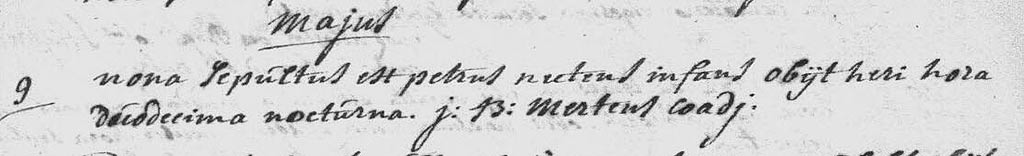 Majus
9 nona Sepultus est petrus neeteus infans obijt heri hora
duodecima nocturna. j: B: Mertens coadj: